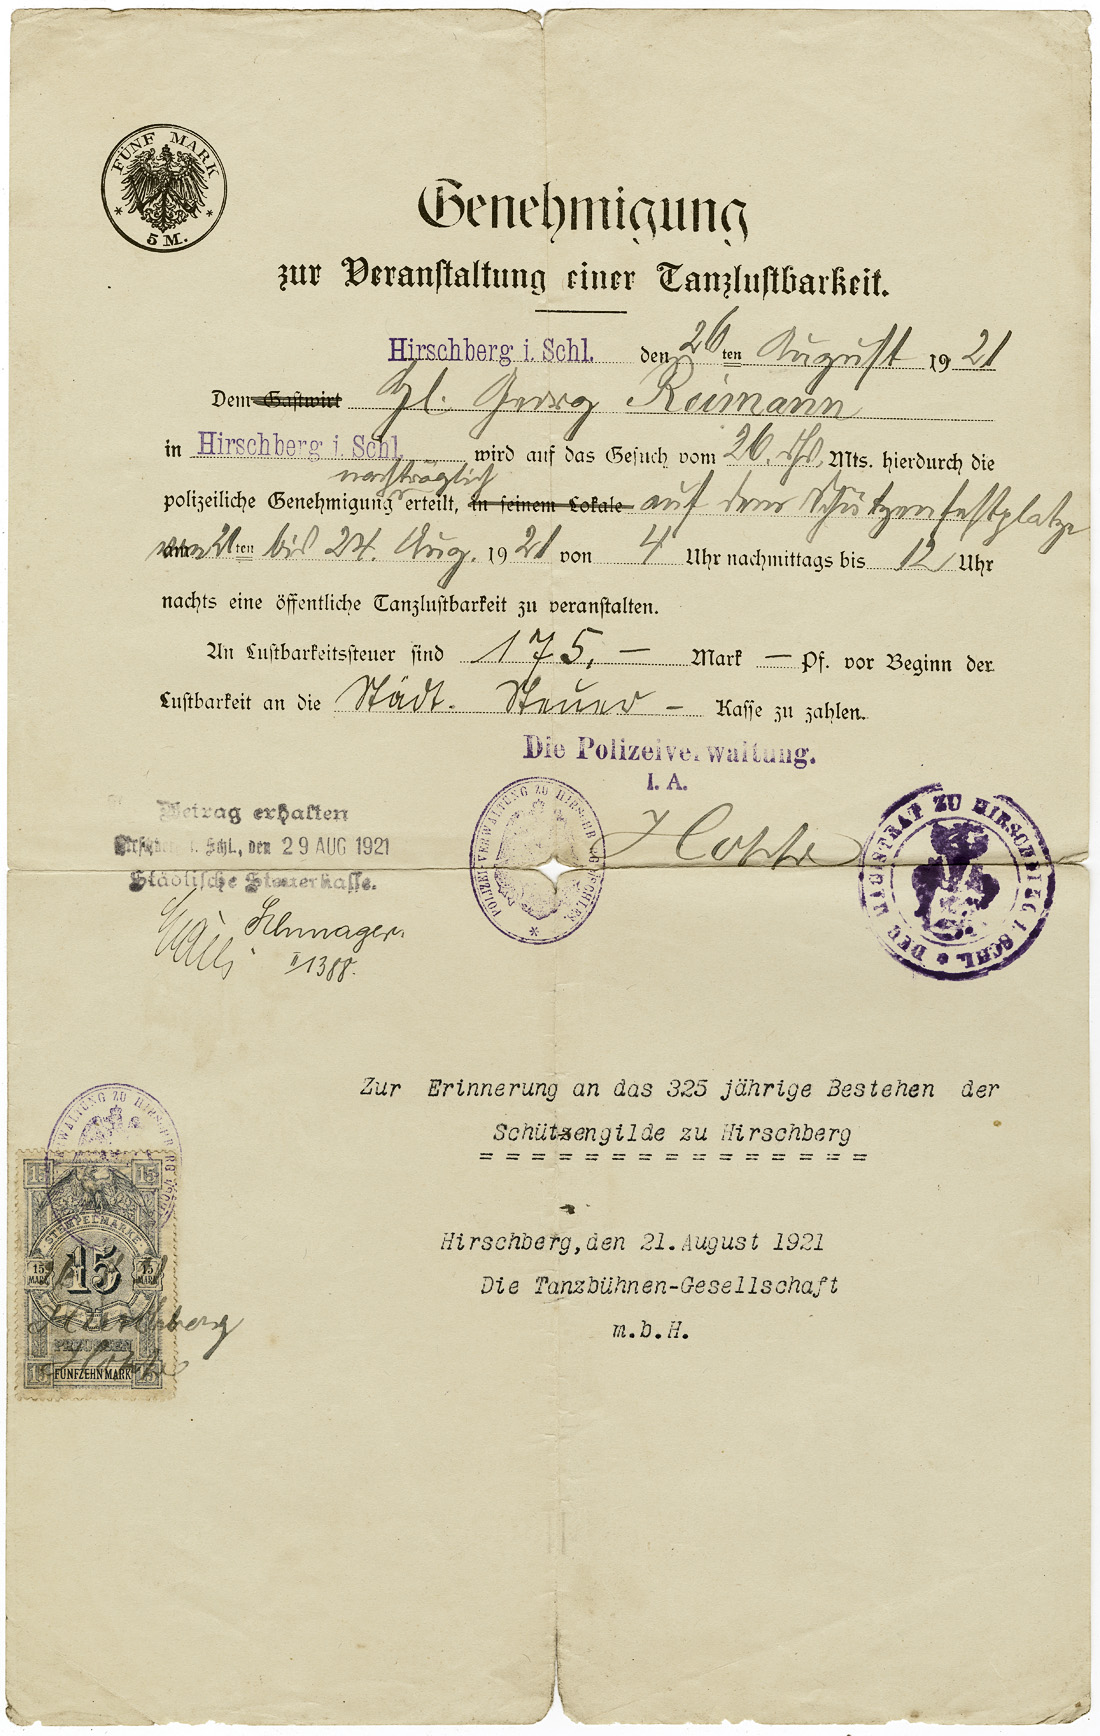 FÜNF MARK
5 M.
Genehmigung
zur Veranstaltung einer Tanzlustbarkeit.
Hirschberg i. Schl. den 26ten August 1921
Dem Gastwirt Georg Reimann
in Hirschberg i. Schl. wird auf das Gesuch vom 26. Mts. hierdurch die
nachträglich
polizeiliche Genehmigung erteilt, in seinem Lokale auf dem Schützenfestplatze
21ten bis 24. Aug. 1921 von 4 Uhr nachmittags bis 12 Uhr
nachts eine öffentliche Tanzlustbarkeit zu veranstalten.
An Lustbarkeitssteuer sind 175.— Mark — Pf. vor Beginn der
Lustbarkeit an die Städt. Steuer - Kasse zu zahlen.
Die Polizeiverwaltung.
I. A.
POLIZEI-VERWALTUNG ZU HIRSCHBERG
DER MAGISTRAT ZU HIRSCHBERG I. SCHL.
Betrag erhalten
Hirschberg i. Schl., den 29 AUG 1921
Städtische Steuerkasse.
II 1388.
Zur Erinnerung an das 325 jährige Bestehen der
Schützengilde zu Hirschberg
= = = = = = = = = = = = = = =
Hirschberg,den 21.August 1921
Die Tanzbühnen-Gesellschaft
m.b.H.
15 15
STEMPELMARKE
15 MARK 15 15 MARK
Hirschberg
PREUSSEN
15 FÜNFZEHN MARK 15